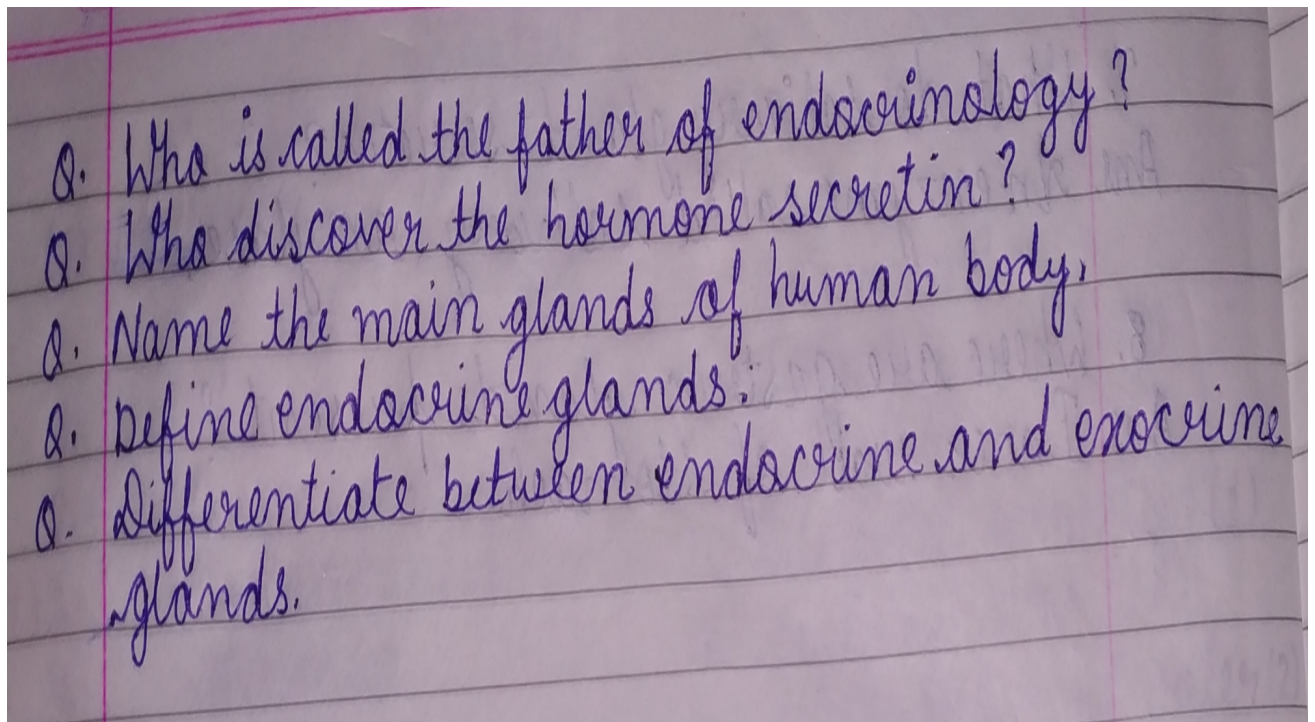 Q. Who is called the father of endocrinology?
Q. Who discover the hormone secretin?
Q. Name the main glands of human body.
Q. Define endocrine glands.
Q. Differentiate between endocrine and exocrine
glands.